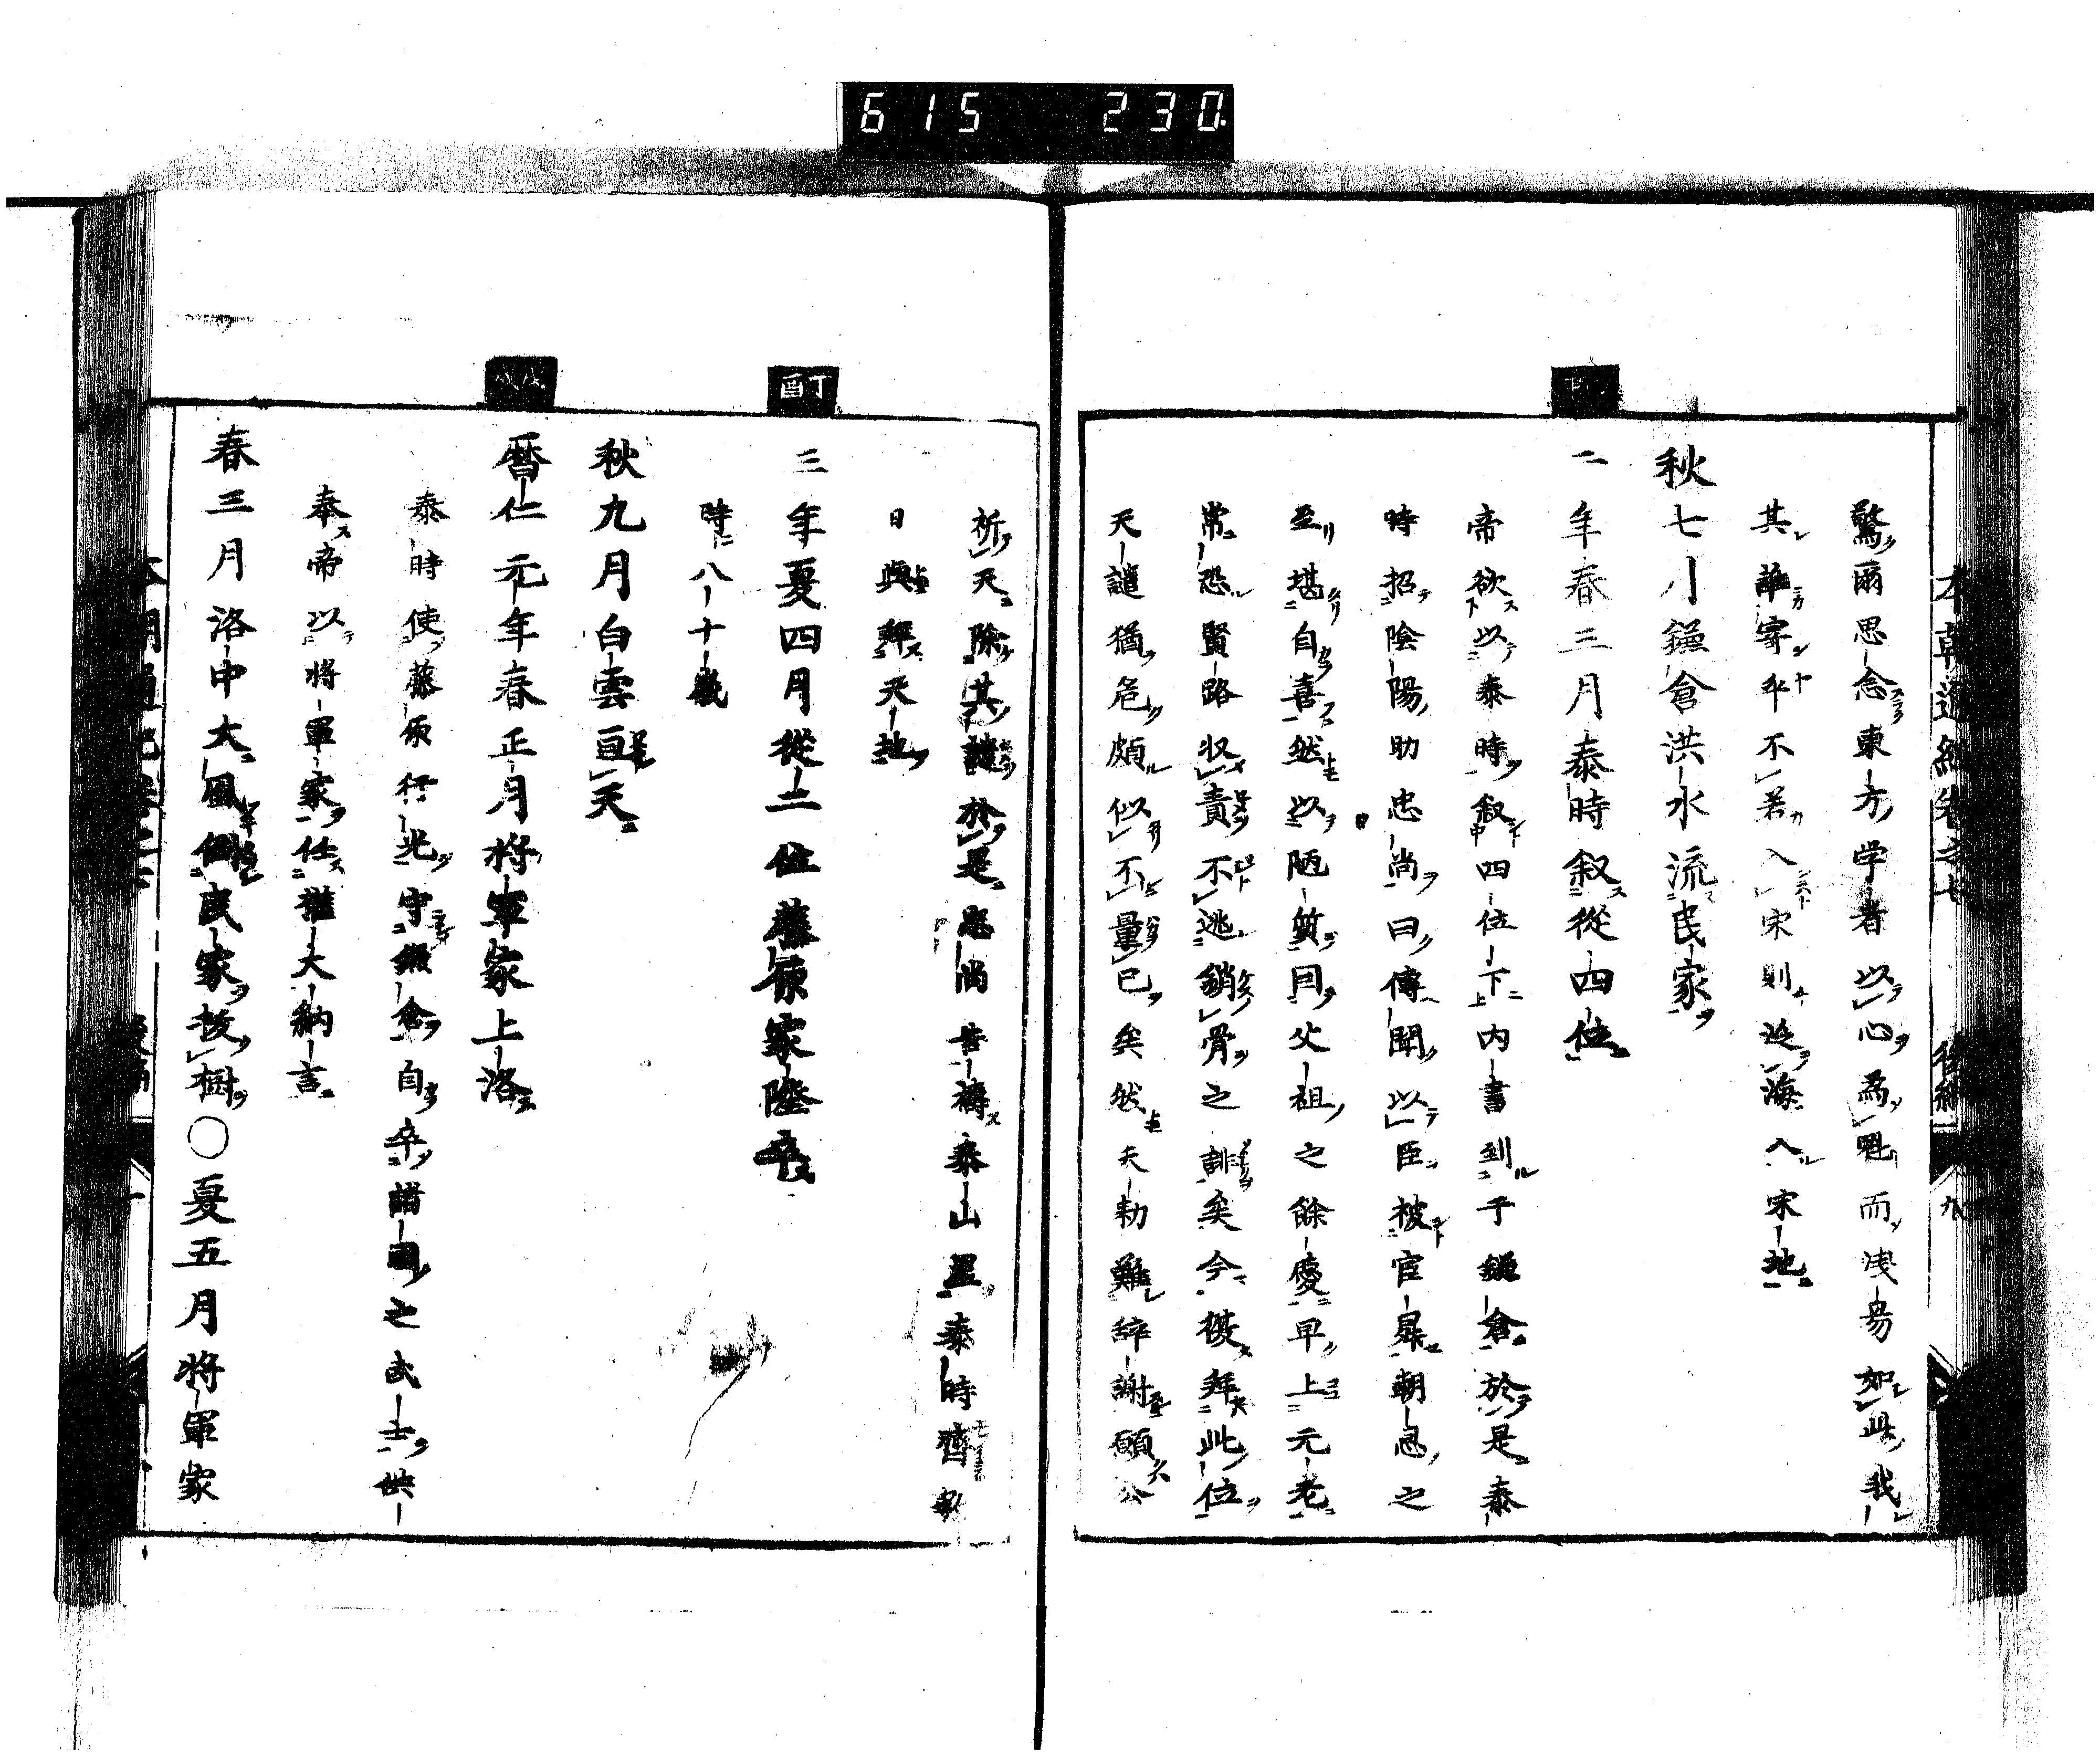 615 230
本朝通紀卷之七 後編 九
驚爾思念東方学者以心為魁而浅易如此我
其誰寄乎不若入宋則泛海入宋地
秋七月鎌倉洪水流民家
二年春三月泰時叙從四位
帝欲以泰時叙四位下内書到于鎌倉於是泰
時招陰陽助忠尚曰傳聞以臣被官昇朝恩之
至堪自喜然以陋質同父祖之餘慶早上元老
常恐賢路収責不逃銷骨之誹矣今從拜此位
天譴猶危頗似不量已矣然天勅難辞謝願公
祈天除其譴於是忠尚告禱泰山星泰時齋
日與拜天地
丁酉
三年夏四月從二位藤原家隆卒
時八十歳
秋九月白雲亘天
暦仁元年春正月将軍家上洛
泰時使藤原行光守鎌倉自卒諸國之武士供
奉帝以将軍家任權大納言
春三月洛中大風倒民家抜樹〇夏五月将軍家